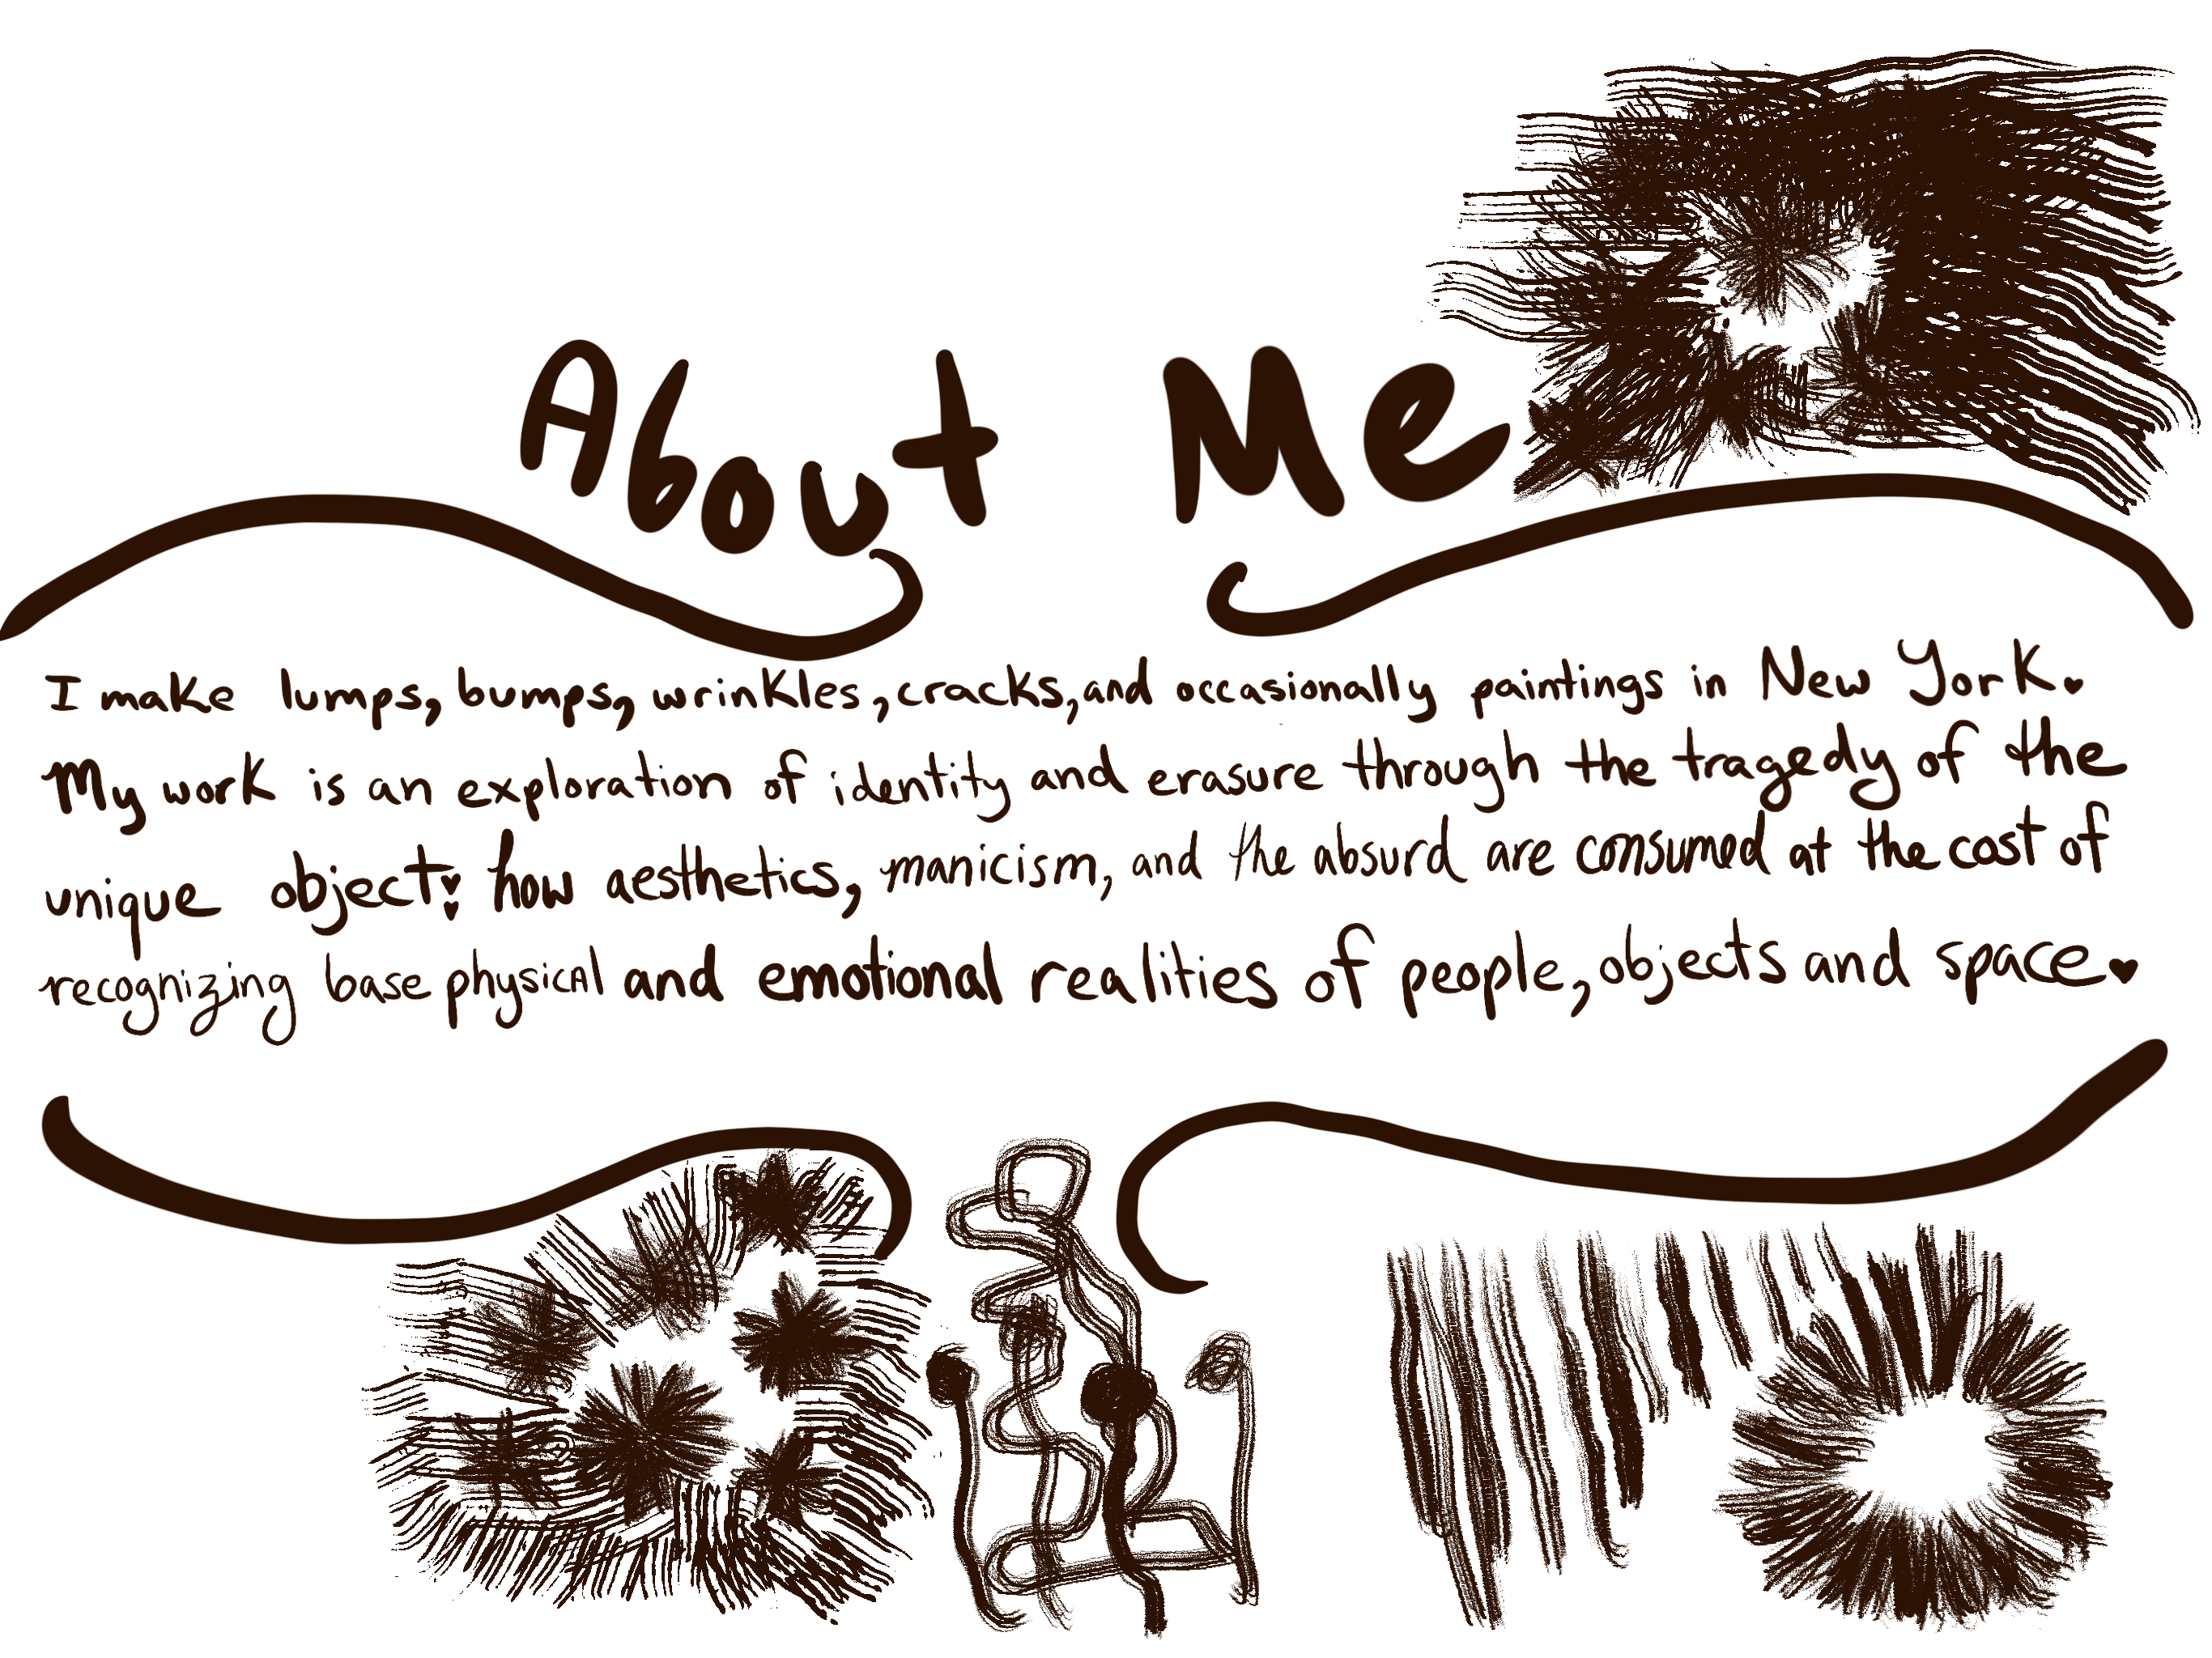 About Me
I make lumps, bumps, wrinkles, cracks, and occasionally paintings in New York.
My work is an exploration of identity and erasure through the tragedy of the
unique object: how aesthetics, manicism, and the absurd are consumed at the cost of
recognizing base physicAl and emotional realities of people, objects and space♥